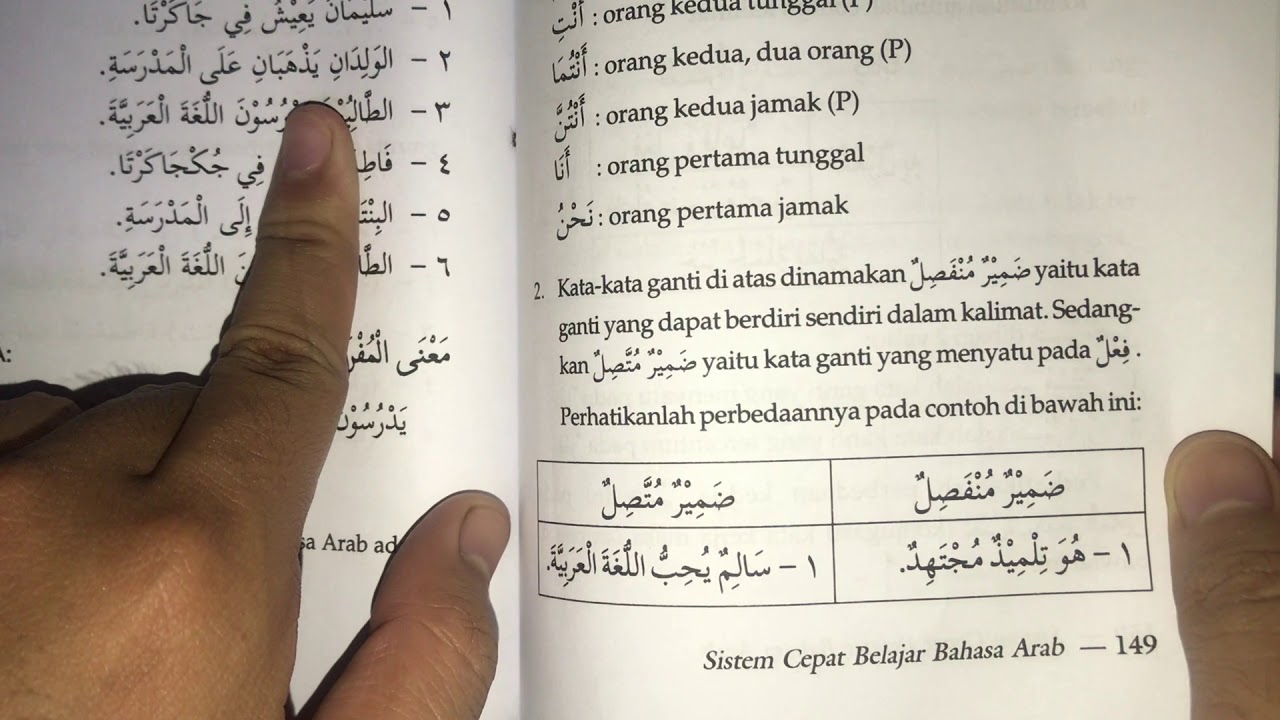 ١ – سُلَيْمَانُ يَعِيْشُ فِي جَاكَرْتَا.
٢ – الوَلِدَانِ يَذْهَبَانِ عَلَى الْمَدْرَسَةِ.
٣ – اللُّغَةَ الْعَرَبِيَّةَ.
٤ – فِي جُكْجَاكَرْتَا.
٥ – إِلَى الْمَدْرَسَةِ.
٦ – اللُّغَةَ الْعَرَبِيَّةَ.
مَعْنَى
Arab
أَنْتِ : orang kedua tunggal (P)
أَنْتُمَا : orang kedua, dua orang (P)
أَنْتُنَّ : orang kedua jamak (P)
أَنَا : orang pertama tunggal
نَحْنُ : orang pertama jamak
2. Kata-kata ganti di atas dinamakan ضَمِيْرٌ مُنْفَصِلٌ yaitu kata
ganti yang dapat berdiri sendiri dalam kalimat. Sedang-
kan ضَمِيْرٌ مُتَّصِلٌ yaitu kata ganti yang menyatu pada فِعْلٌ .
Perhatikanlah perbedaannya pada contoh di bawah ini:
ضَمِيْرٌ مُنْفَصِلٌ
ضَمِيْرٌ مُتَّصِلٌ
١ – هُوَ تِلْمِيْذٌ مُجْتَهِدٌ.
١ – سَالِمٌ يُحِبُّ اللُّغَةَ الْعَرَبِيَّةَ.
Sistem Cepat Belajar Bahasa Arab — 149